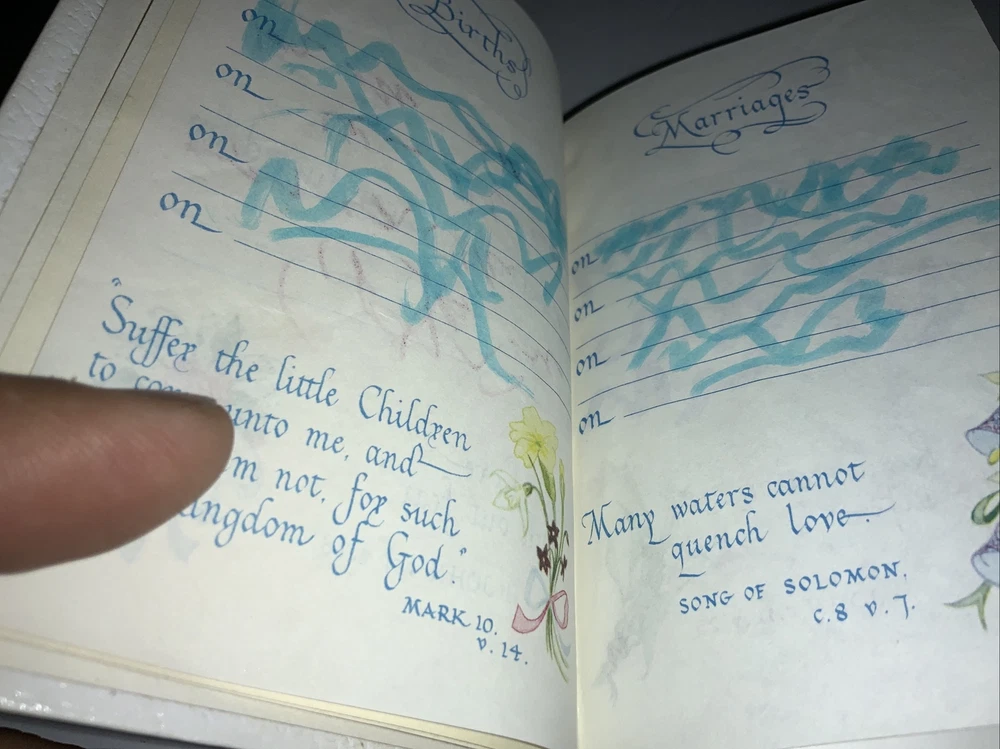 Births
on
on
on
on
"Suffer the little Children
to unto me, and
not, for such
of God."
MARK 10.
v. 14.
Marriages
on
on
on
on
Many waters cannot
quench love
SONG OF SOLOMON.
c.8 v.7.